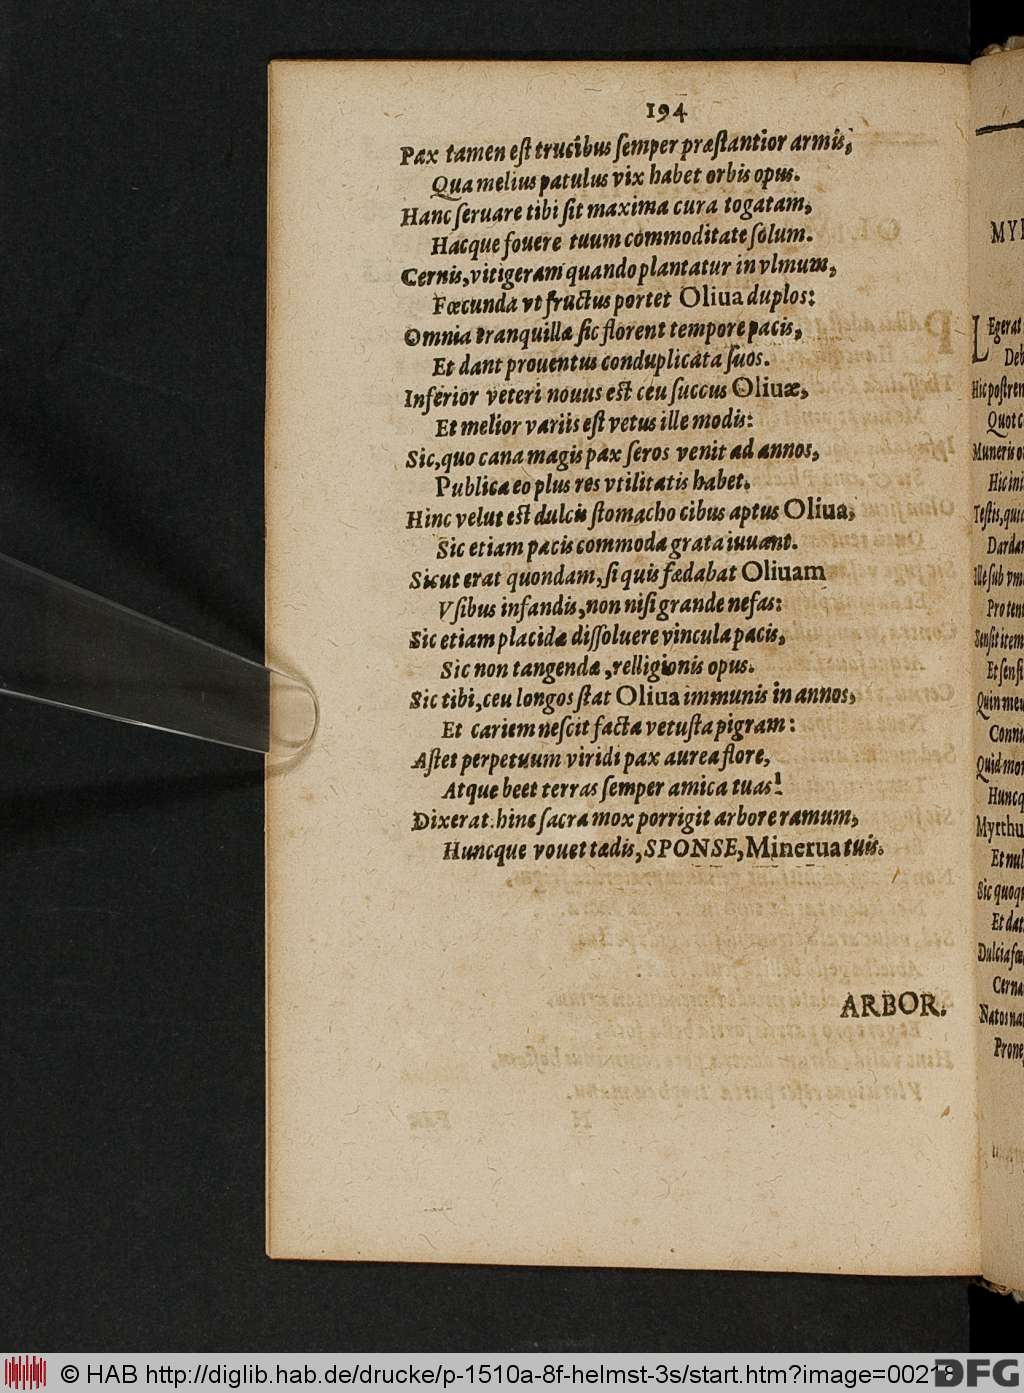 194
Pax tamen est trucibus semper præstantior armis,
Qua melius patulus vix habet orbis opus.
Hanc seruare tibi sit maxima cura togatam,
Hacque fouere tuum commoditate solum.
Cernis, vitigeram quando plantatur in vlmum,
Fœcunda vt fructus portet Oliua duplos:
Omnia tranquillæ sic florent tempore pacis,
Et dant prouentus conduplicata suos.
Inferior veteri nouus est ceu succus Oliuæ,
Et melior variis est vetus ille modis:
Sic, quo cana magis pax seros venit ad annos,
Publica eo plus res vtilitatis habet.
Hinc velut est dulcis stomacho cibus aptus Oliua,
Sic etiam pacis commoda grata iuuant.
Sicut erat quondam, si quis fædabat Oliuam
Vsibus infandis, non nisi grande nefas:
Sic etiam placidæ dissoluere vincula pacis,
Sic non tangendæ, relligionis opus.
Sic tibi, ceu longos stat Oliua immunis in annos,
Et cariem nescit facta vetusta pigram:
Astet perpetuum viridi pax aurea flore,
Atque beet terras semper amica tuas!
Dixerat: hinc sacra mox porrigit arbore ramum,
Huncque vouet tædis, SPONSE, Minerua tuis.
ARBOR.
LEgerat
Hic postrem
Quot
Muneris
Hic
Testis, quid
Dardan
Ille sub
Sensit item
Et sensi
Quin meu
Quid mor
Huncq
Myrthu
Et nul
Sic quoq
Et dat
Dulcia
Cerna
Natos
Prone
© HAB http://diglib.hab.de/drucke/p-1510a-8f-helmst-3s/start.htm?image=00218
DFG